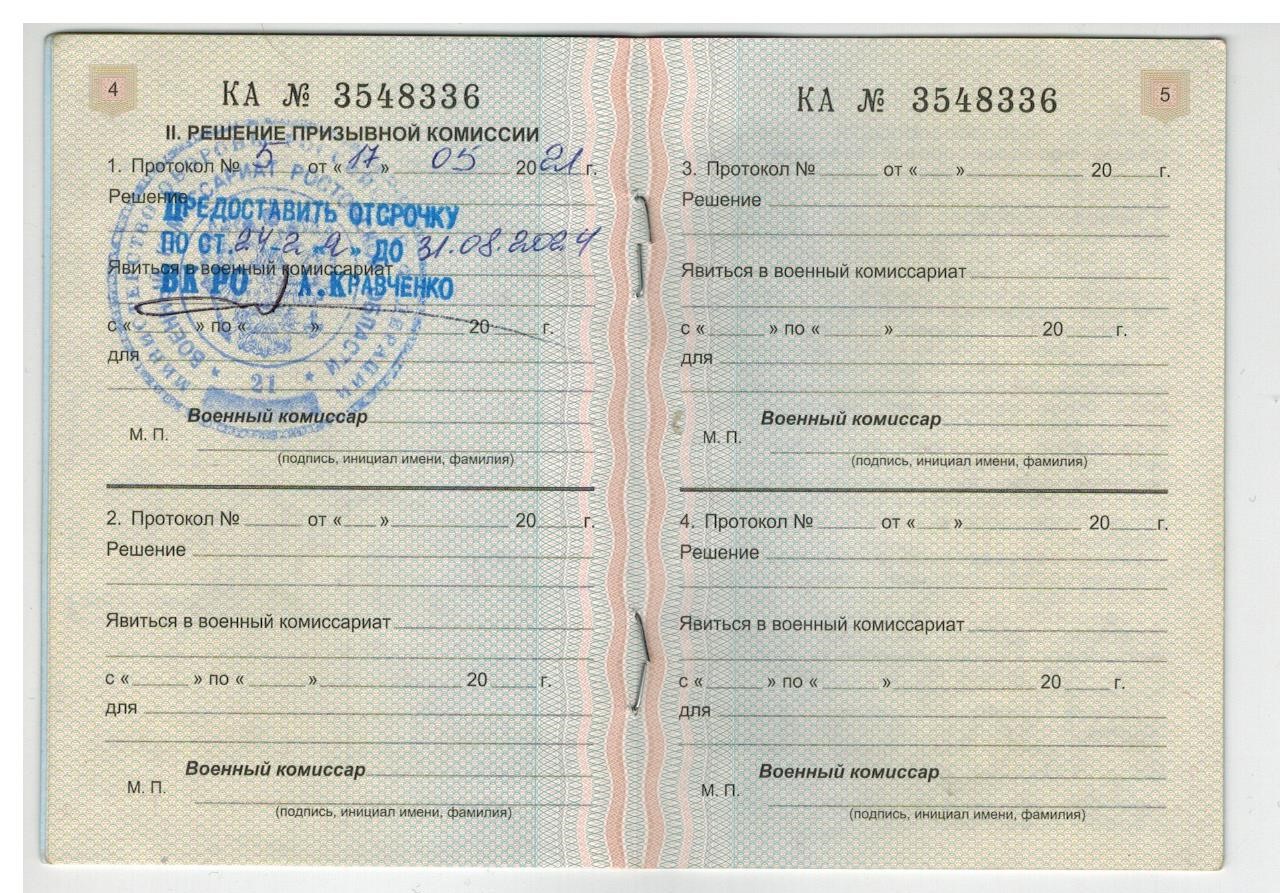 4
КА № 3548336
II. РЕШЕНИЕ ПРИЗЫВНОЙ КОМИССИИ
1. Протокол № 5 от « 17 » 05 2021 г.
Решение
ПРЕДОСТАВИТЬ ОТСРОЧКУ
ПО СТ. 24-2 "а" ДО 31.08.2024
Явиться в военный комиссариат
ВК РО А.КРАВЧЕНКО
с «______» по «______»______________20____г.
для
21
Военный комиссар
М. П.
(подпись, инициал имени, фамилия)
2. Протокол № _____ от «___»____________20____г.
Решение
Явиться в военный комиссариат
с «______» по «______»______________20____г.
для
Военный комиссар
М. П.
(подпись, инициал имени, фамилия)
5
КА № 3548336
3. Протокол № _____ от «___»____________20____г.
Решение
Явиться в военный комиссариат
с «______» по «______»______________20____г.
для
Военный комиссар
М. П.
(подпись, инициал имени, фамилия)
4. Протокол № _____ от «___»____________20____г.
Решение
Явиться в военный комиссариат
с «______» по «______»______________20____г.
для
Военный комиссар
М. П.
(подпись, инициал имени, фамилия)